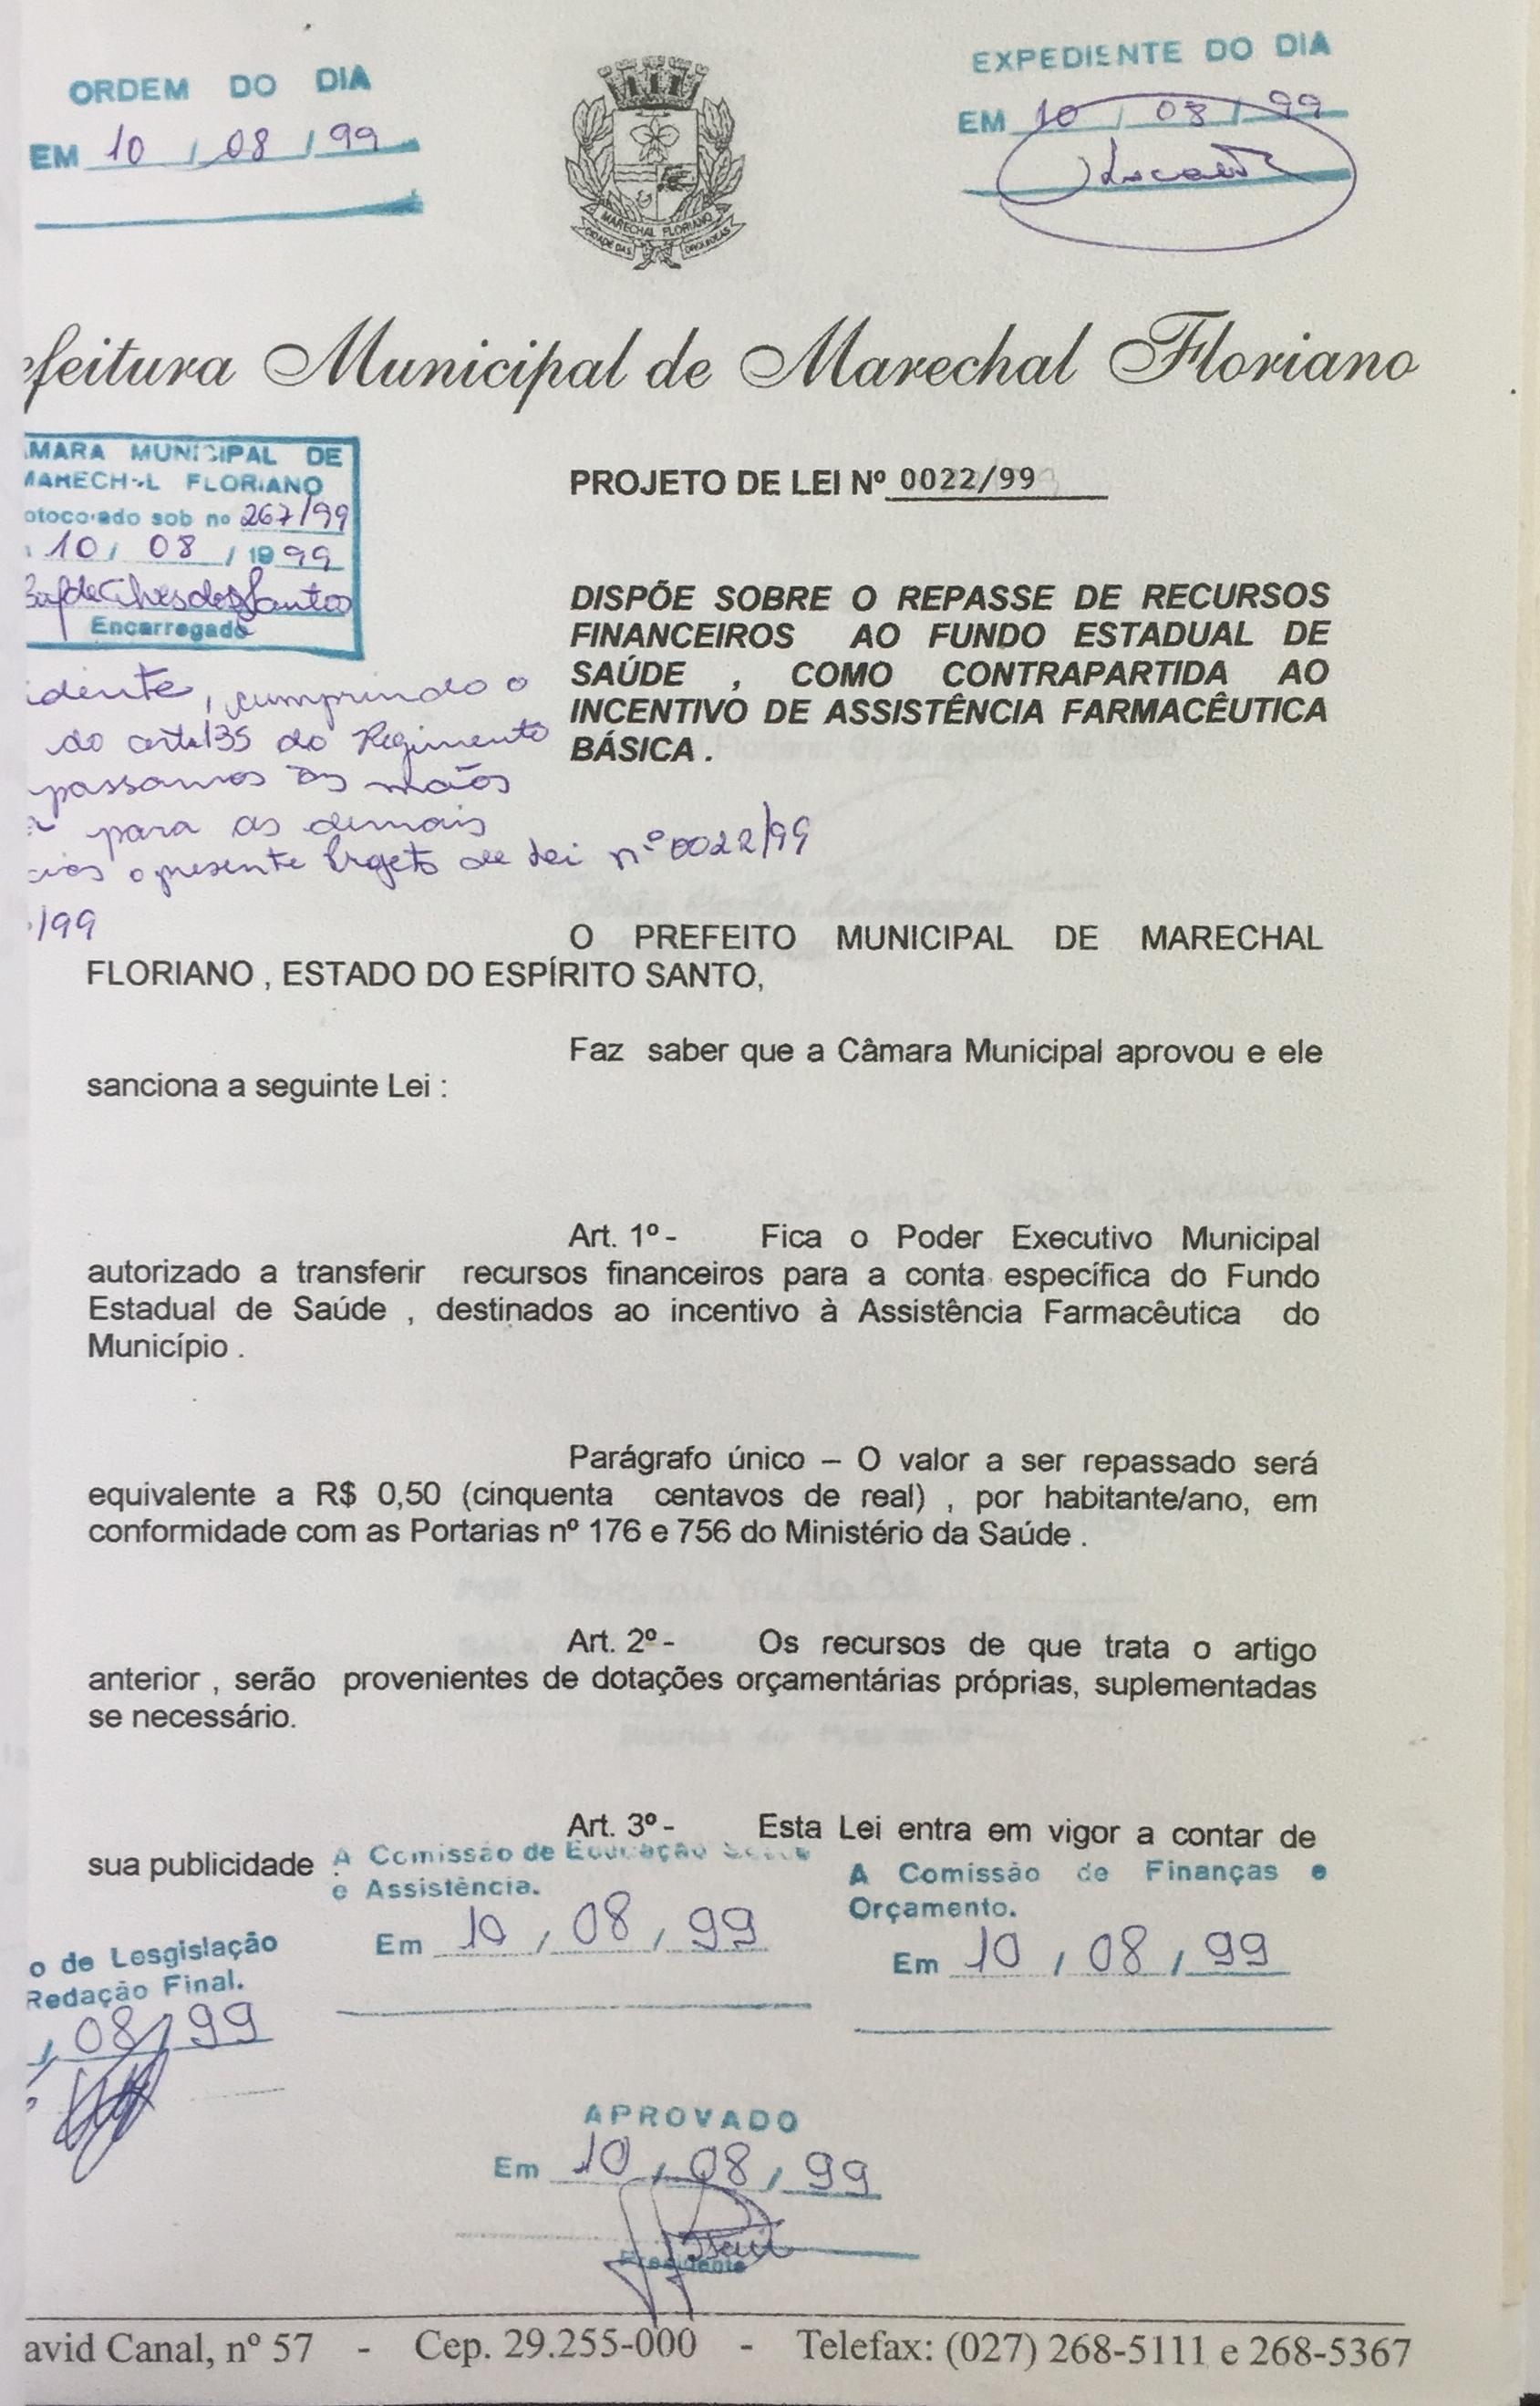 ORDEM DO DIA
EM 10 / 08 / 99
EXPEDIENTE DO DIA
EM 10 / 08 / 99
MARECHAL FLORIANO
CIDADE DAS ORQUIDEAS
efeitura Municipal de Marechal Floriano
MARA MUNICIPAL DE
MARECHAL FLORIANO
otocolado sob no 267/99
10 / 08 / 1999
Santos
Encarregado
PROJETO DE LEI Nº 0022/99
DISPÕE SOBRE O REPASSE DE RECURSOS
FINANCEIROS AO FUNDO ESTADUAL DE
SAÚDE , COMO CONTRAPARTIDA AO
INCENTIVO DE ASSISTÊNCIA FARMACÊUTICA
BÁSICA .
idente, cumprindo o
do art. 135 do Regimento
passamos às mãos
para as demais
cias o presente Projeto de Lei nº 0022/99
/99
O PREFEITO MUNICIPAL DE MARECHAL
FLORIANO , ESTADO DO ESPÍRITO SANTO,
Faz saber que a Câmara Municipal aprovou e ele
sanciona a seguinte Lei :
Art. 1º - Fica o Poder Executivo Municipal
autorizado a transferir recursos financeiros para a conta específica do Fundo
Estadual de Saúde , destinados ao incentivo à Assistência Farmacêutica do
Município .
Parágrafo único – O valor a ser repassado será
equivalente a R$ 0,50 (cinquenta centavos de real) , por habitante/ano, em
conformidade com as Portarias nº 176 e 756 do Ministério da Saúde .
Art. 2º - Os recursos de que trata o artigo
anterior , serão provenientes de dotações orçamentárias próprias, suplementadas
se necessário.
Art. 3º - Esta Lei entra em vigor a contar de
sua publicidade .
A Comissão de Educação Saúde
e Assistência.
Em 10 / 08 / 99
A Comissão de Finanças e
Orçamento.
Em 10 / 08 / 99
o de Lesgislação
Redação Final.
/ 08 / 99
APROVADO
Em 10 / 08 / 99
Presidente
avid Canal, nº 57 - Cep. 29.255-000 - Telefax: (027) 268-5111 e 268-5367